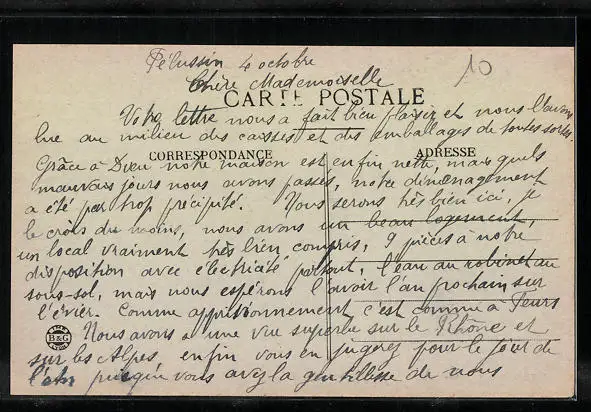 Pélussin 4 octobre
10
Chère Mademoiselle
CARTE POSTALE
Votre lettre nous a fait bien plaisir et nous l'avons
lue au milieu des caisses et des emballages de toutes sortes.
CORRESPONDANCE
ADRESSE
Grâce à Dieu notre maison est enfin nette, mais quels
mauvais jours nous avons passés, notre déménagement
a été par trop précipité. Nous serons très bien ici, je
le crois du moins, nous avons un beau logement,
un local vraiment très bien compris, 9 pièces à notre
disposition avec électricité partout, l'eau au robinet au
sous-sol, mais nous espérons l'avoir l'an prochain sur
l'évier. Comme approvisionnement c'est comme à Feurs
B&G
Nous avons une vue superbe sur le Rhône et
sur les Alpes, enfin vous en jugerez pour le jour de
l'an puisque vous avez la gentillesse de nous